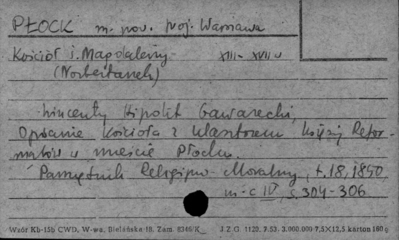 PŁOCK m. pow. woj. Warszawa
Kościół ś. Magdaleny XIII - XVII w
(Norbertanek)
Wincenty Hipolit Gawarecki,
Opisanie kościoła z klasztorem księży Refor-
matów w mieście Płocku.
Pamiętnik Religijno-Moralny, t. 18, 1850
s. 304-306
Wzór Kb-15b CWD, W-wa, Bielańska 18. Zam. J.Z.G. 1120. 9.53. 3.000.000 7,5X12,5 karton 160 g